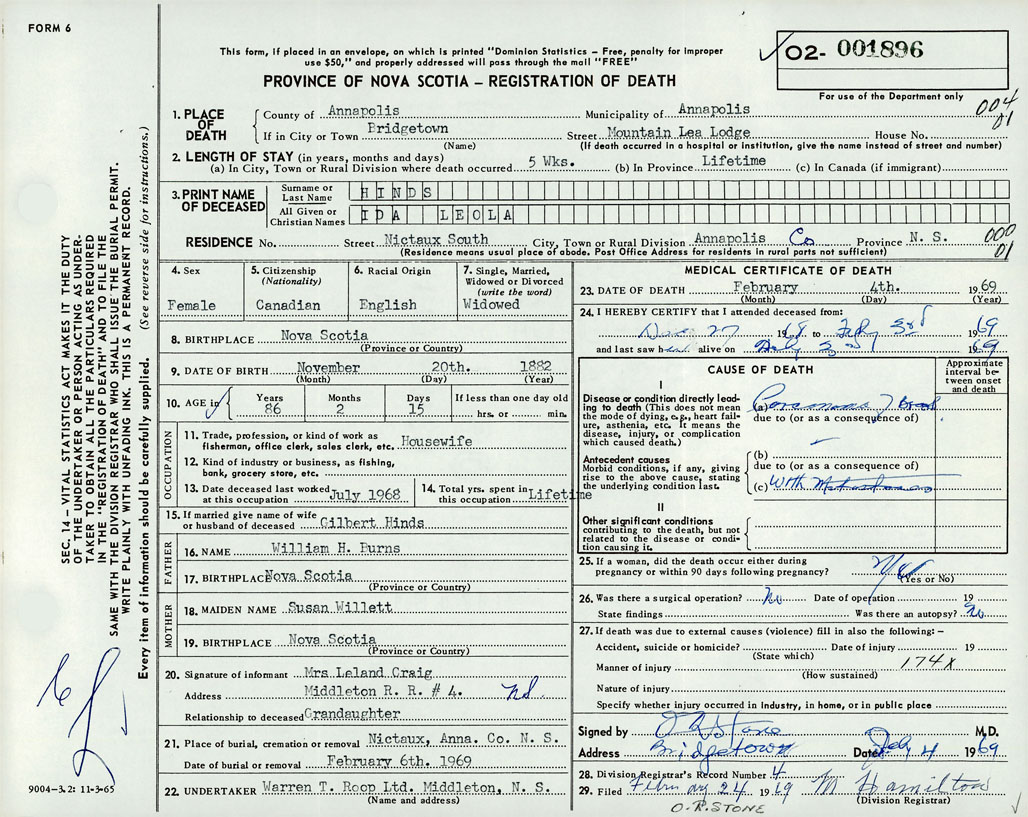 FORM 6
This form, if placed in an envelope, on which is printed "Dominion Statistics – Free, penalty for improper
use $50," and properly addressed will pass through the mail "FREE"
PROVINCE OF NOVA SCOTIA – REGISTRATION OF DEATH
O2- 001896
For use of the Department only
004
01
1. PLACE OF DEATH
County of Annapolis Municipality of Annapolis
If in City or Town Bridgetown Street Mountain Lea Lodge House No.
(Name) (If death occurred in a hospital or institution, give the name instead of street and number)
2. LENGTH OF STAY (in years, months and days)
(a) In City, Town or Rural Division where death occurred 5 Wks. (b) In Province Lifetime (c) In Canada (if immigrant)
3. PRINT NAME OF DECEASED
Surname or Last Name HINDS
All Given or Christian Names IDA LEOLA
RESIDENCE No. Street Nictaux South City, Town or Rural Division Annapolis Co Province N. S.
000
01
(Residence means usual place of abode. Post Office Address for residents in rural parts not sufficient)
4. Sex
Female
5. Citizenship
(Nationality)
Canadian
6. Racial Origin
English
7. Single, Married,
Widowed or Divorced
(write the word)
Widowed
8. BIRTHPLACE Nova Scotia
(Province or Country)
9. DATE OF BIRTH November 20th. 1882
(Month) (Day) (Year)
10. AGE in
Years Months Days If less than one day old
86 2 15 hrs. or min.
OCCUPATION
11. Trade, profession, or kind of work as
fisherman, office clerk, sales clerk, etc. Housewife
12. Kind of industry or business, as fishing,
bank, grocery store, etc.
13. Date deceased last worked
at this occupation July 1968
14. Total yrs. spent in
this occupation Lifetime
15. If married give name of wife
or husband of deceased Gilbert Hinds
FATHER
16. NAME William H. Burns
17. BIRTHPLACE Nova Scotia
(Province or Country)
MOTHER
18. MAIDEN NAME Susan Willett
19. BIRTHPLACE Nova Scotia
(Province or Country)
20. Signature of informant Mrs Leland Craig
Address Middleton R. R. # 4.
Relationship to deceased Grandaughter
21. Place of burial, cremation or removal Nictaux, Anna. Co. N. S.
Date of burial or removal February 6th. 1969
22. UNDERTAKER Warren T. Roop Ltd. Middleton, N. S.
(Name and address)
MEDICAL CERTIFICATE OF DEATH
23. DATE OF DEATH February 4th. 1969
(Month) (Day) (Year)
24. I HEREBY CERTIFY that I attended deceased from:
27 1968 to Feby 3rd 1969
and last saw her alive on 3rd 1969
CAUSE OF DEATH
Approximate
interval be-
tween onset
and death
I
Disease or condition directly lead-
ing to death (This does not mean
the mode of dying, e.g., heart fail-
ure, asthenia, etc. It means the
disease, injury, or complication
which caused death.)
(a)
due to (or as a consequence of)
Antecedent causes
Morbid conditions, if any, giving
rise to the above cause, stating
the underlying condition last.
(b)
due to (or as a consequence of)
(c) With
II
Other significant conditions
contributing to the death, but not
related to the disease or condi-
tion causing it.
25. If a woman, did the death occur either during
pregnancy or within 90 days following pregnancy?
(Yes or No)
26. Was there a surgical operation? No Date of operation 19
State findings Was there an autopsy? No
27. If death was due to external causes (violence) fill in also the following: –
Accident, suicide or homicide? Date of injury 19
(State which)
174X
Manner of injury
(How sustained)
Nature of injury
Specify whether injury occurred in industry, in home, or in public place
Signed by Stone M.D.
Address Bridgetown Date Feby 4 1969
28. Division Registrar's Record Number 4
29. Filed February 24 1969 M Hamilton
(Division Registrar)
O.R. STONE
SEC. 14 – VITAL STATISTICS ACT MAKES IT THE DUTY
OF THE UNDERTAKER OR PERSON ACTING AS UNDER-
TAKER TO OBTAIN ALL THE PARTICULARS REQUIRED
IN THE "REGISTRATION OF DEATH" AND TO FILE THE
SAME WITH THE DIVISION REGISTRAR WHO SHALL ISSUE THE BURIAL PERMIT.
WRITE PLAINLY WITH UNFADING INK. THIS IS A PERMANENT RECORD.
Every item of information should be carefully supplied. (See reverse side for instructions.)
9004–3.2: 11-3-65